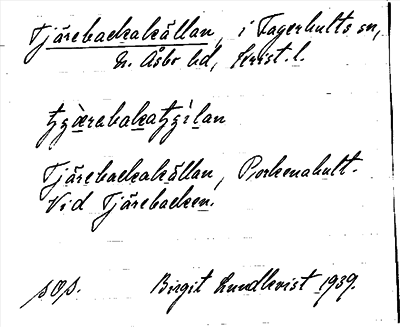 Tjärebackakällan, i Fagerhults sn,
N. Åsbo hd, Krist. l.
Tjärebackakällan, Porkenahult.
Vid Tjärebacken.
sOs. Birgit Lundkvist 1939.